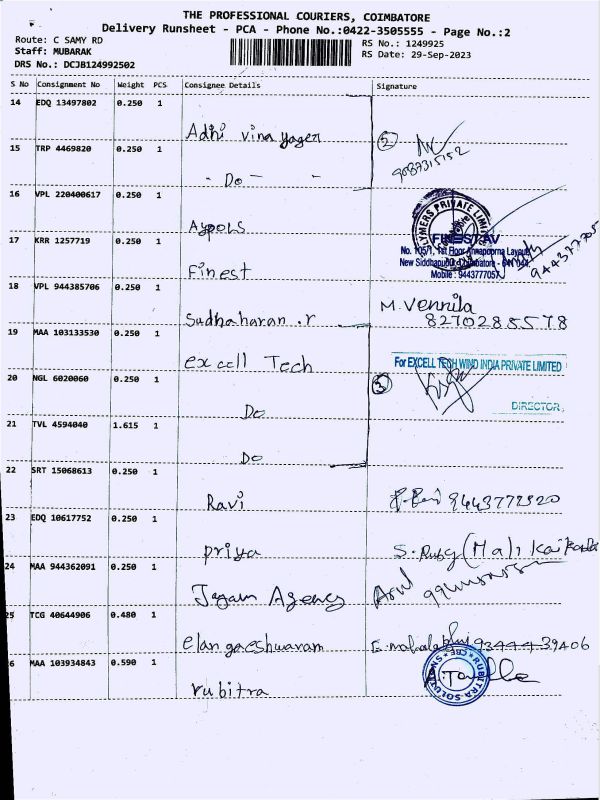 THE PROFESSIONAL COURIERS, COIMBATORE
Delivery Runsheet - PCA - Phone No.:0422-3505555 - Page No.:2
Route: C SAMY RD
RS No.: 1249925
Staff: MUBARAK
RS Date: 29-Sep-2023
DRS No.: DCJB124992502
S No Consignment No Weight PCS Consignee Details Signature
14 EDQ 13497802 0.250 1
Adhi vinayager
②
9087315152
15 TRP 4469820 0.250 1
- Do - -
16 VPL 220400617 0.250 1
PRIVATE LIMITED
17 KRR 1257719 0.250 1
Finest
New Siddhapudur, Coimbatore - 641 044.
18 VPL 944385706 0.250 1
Sudhaharan .r
M. Vennila
8270285578
19 MAA 103133530 0.250 1
excell Tech
For EXCELL TECH WIND INDIA PRIVATE LIMITED
20 NGL 6020060 0.250 1
③
Do
DIRECTOR
21 TVL 4594040 1.615 1
Do
22 SRT 15068613 0.250 1
Ravi
9443772520
23 EDQ 10617752 0.250 1
priya
S. Ruby
24 MAA 944362091 0.250 1
Jayam Agency
Arul
25 TCG 40644906 0.480 1
elangaeshwaram
9344439406
26 MAA 103934843 0.590 1
rubitra
RUBITRA SOLUTIONS
CBE